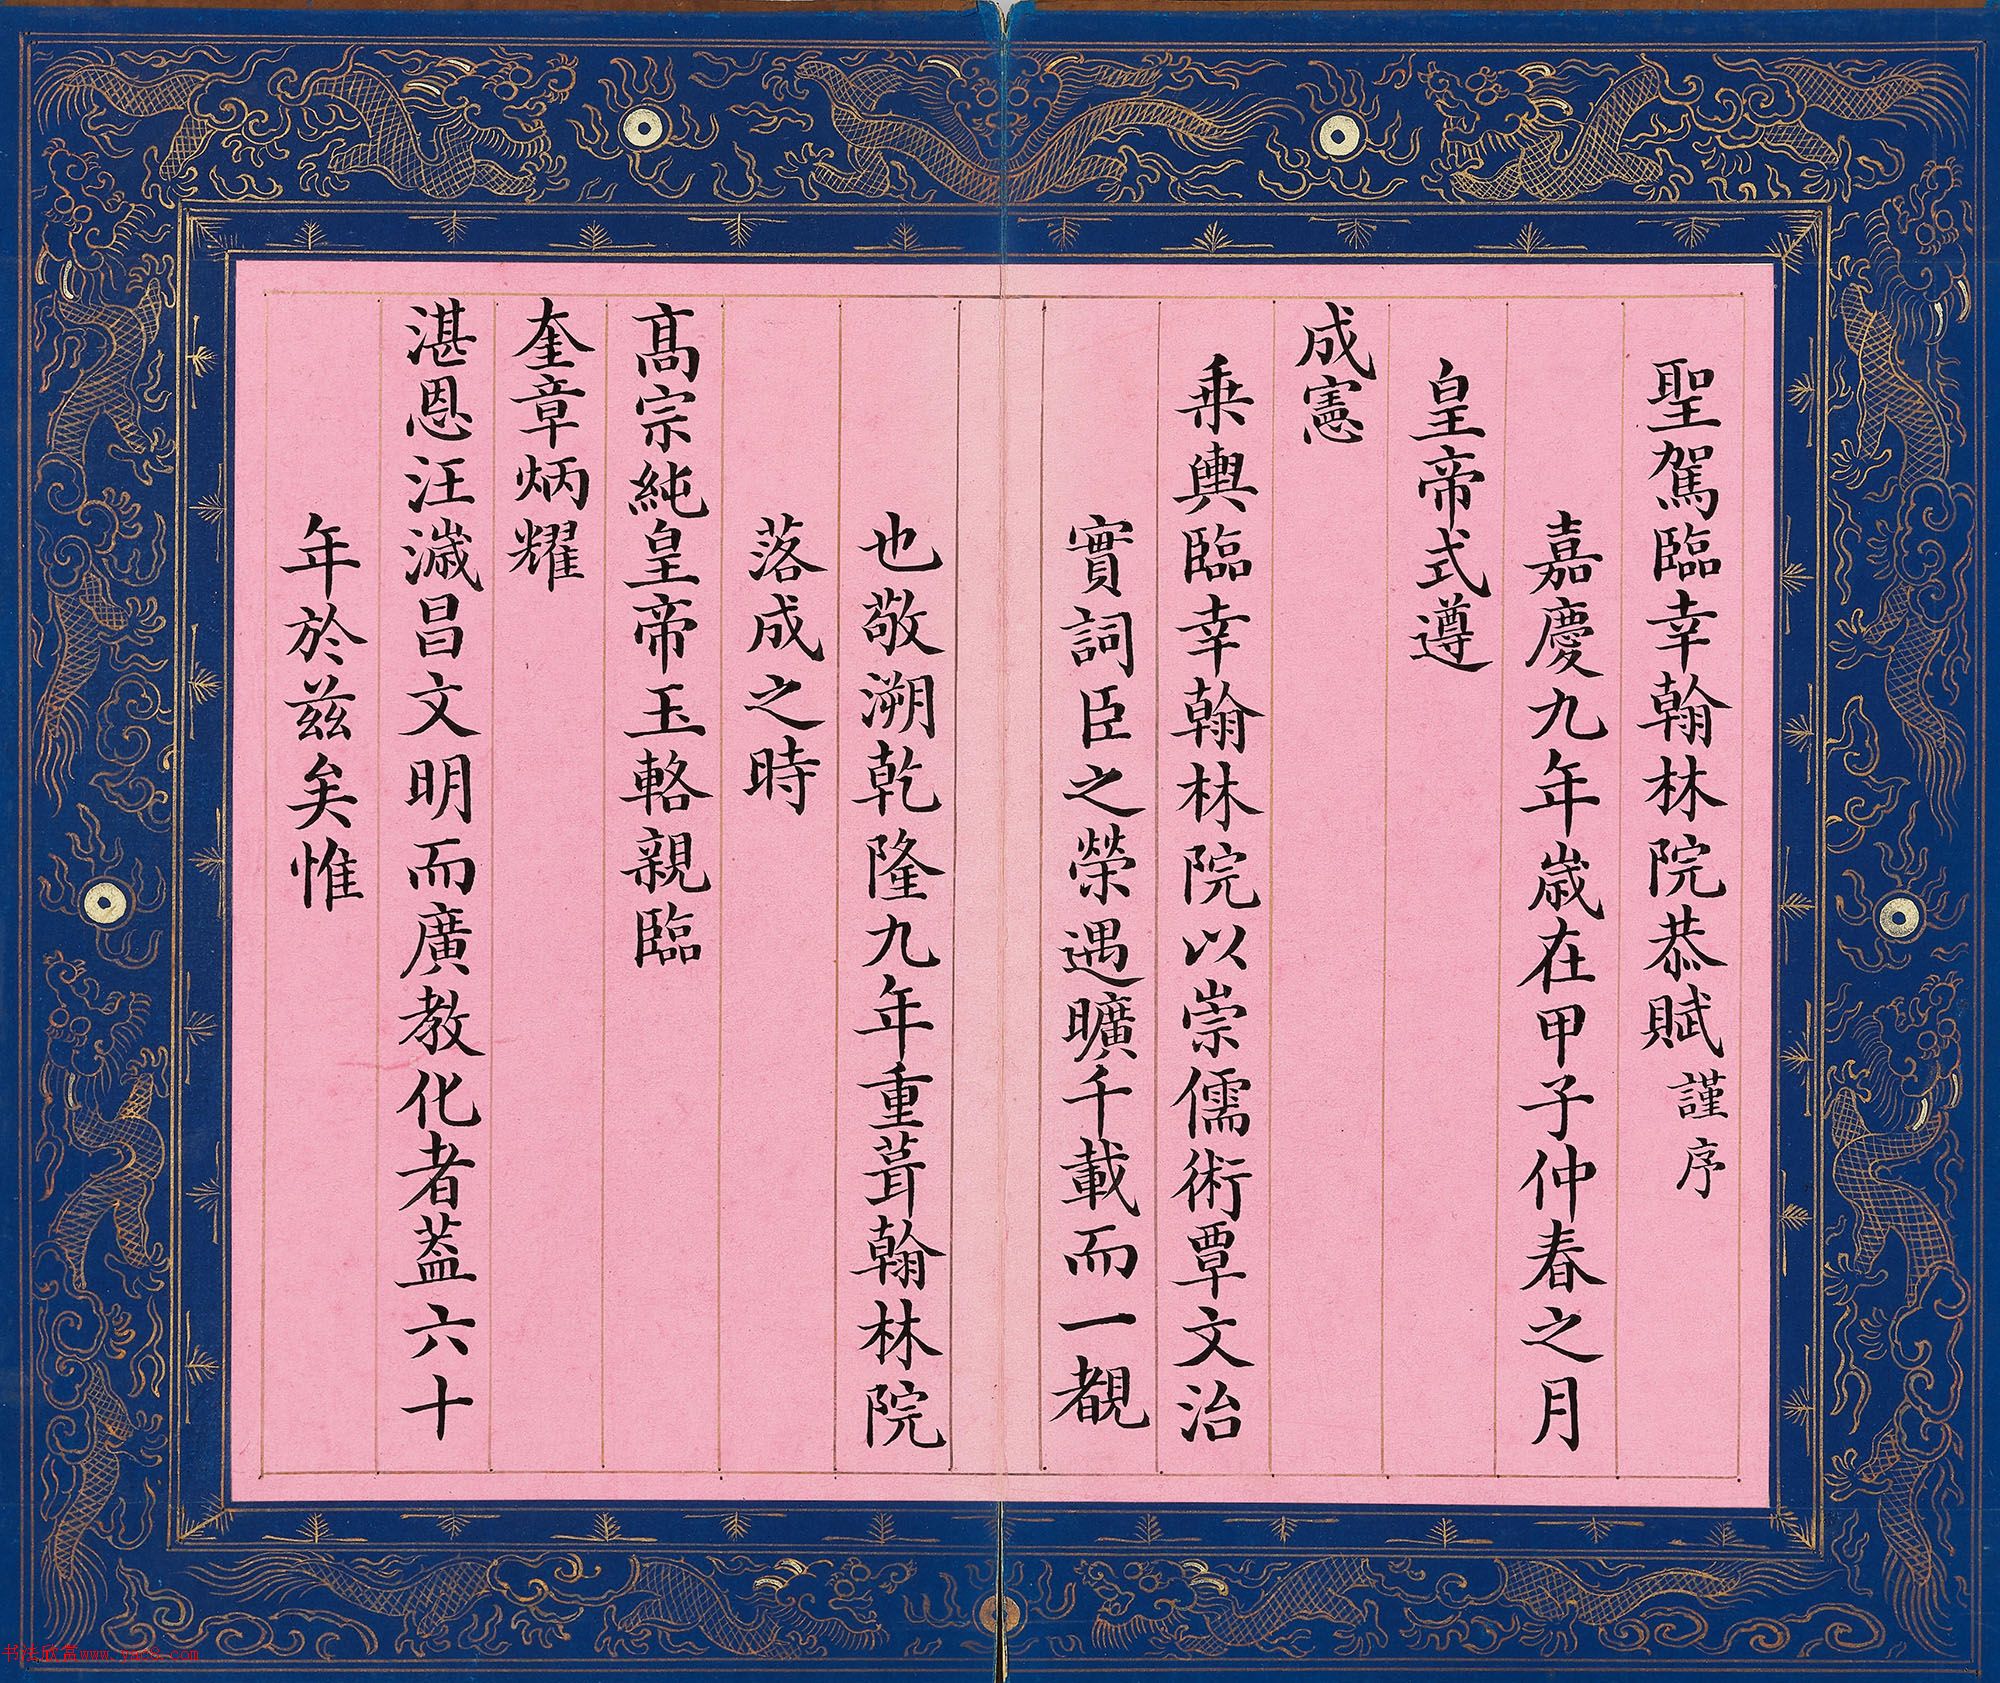 聖駕臨幸翰林院恭賦謹序
嘉慶九年歲在甲子仲春之月
皇帝式遵
成憲
乗輿臨幸翰林院以崇儒術覃文治
實詞臣之榮遇曠千載而一覩
也敬溯乾隆九年重葺翰林院
落成之時
髙宗純皇帝玉輅親臨
奎章炳耀
湛恩汪濊昌文明而廣教化者葢六十
年於茲矣惟
书法欣赏www.yac8.com